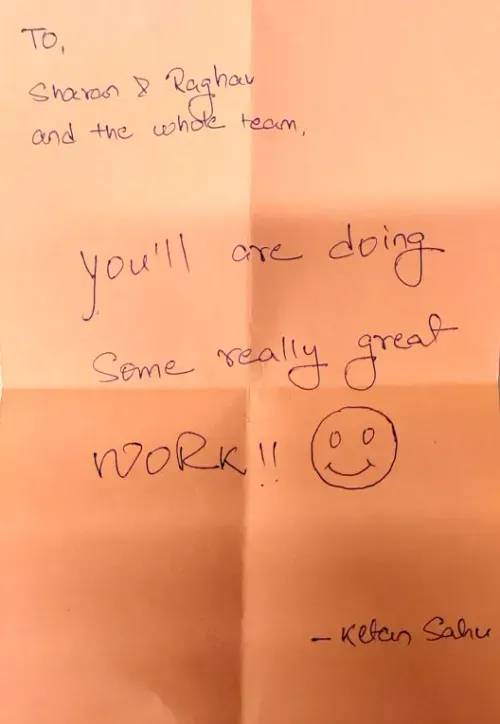 To,
Sharan & Raghav
and the whole team,
you'll are doing
Some really great
WORK!!
- Ketan Sahu